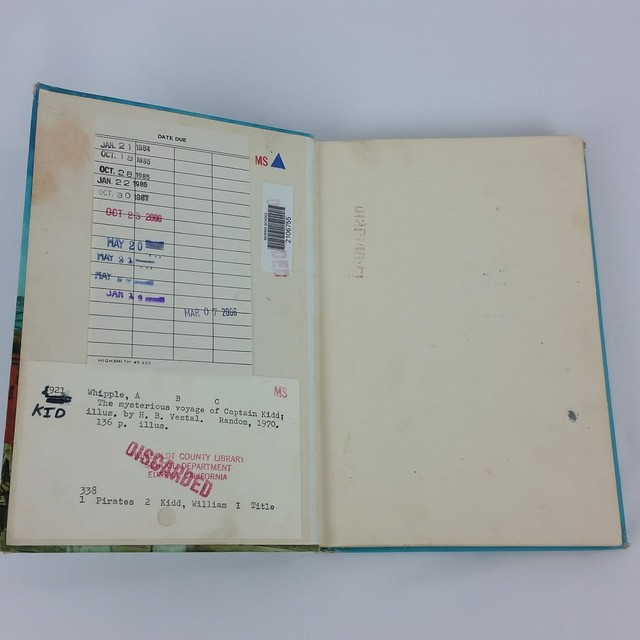 DATE DUE
JAN. 21 1984
OCT. 18 1985
OCT. 28 1985
JAN. 22 1986
OCT. 30 1987
OCT 23 2000
MAY 20
MAY 21
MAY
JAN
MAR 07 2006
HIGHSMITH
MS
2106755
921
KID
MS
Whipple, A B C
The mysterious voyage of Captain Kidd;
illus. by H. B. Vestal. Random, 1970.
136 p. illus.
COUNTY LIBRARY
DEPARTMENT
CALIFORNIA
DISCARDED
338
1 Pirates 2 Kidd, William I Title